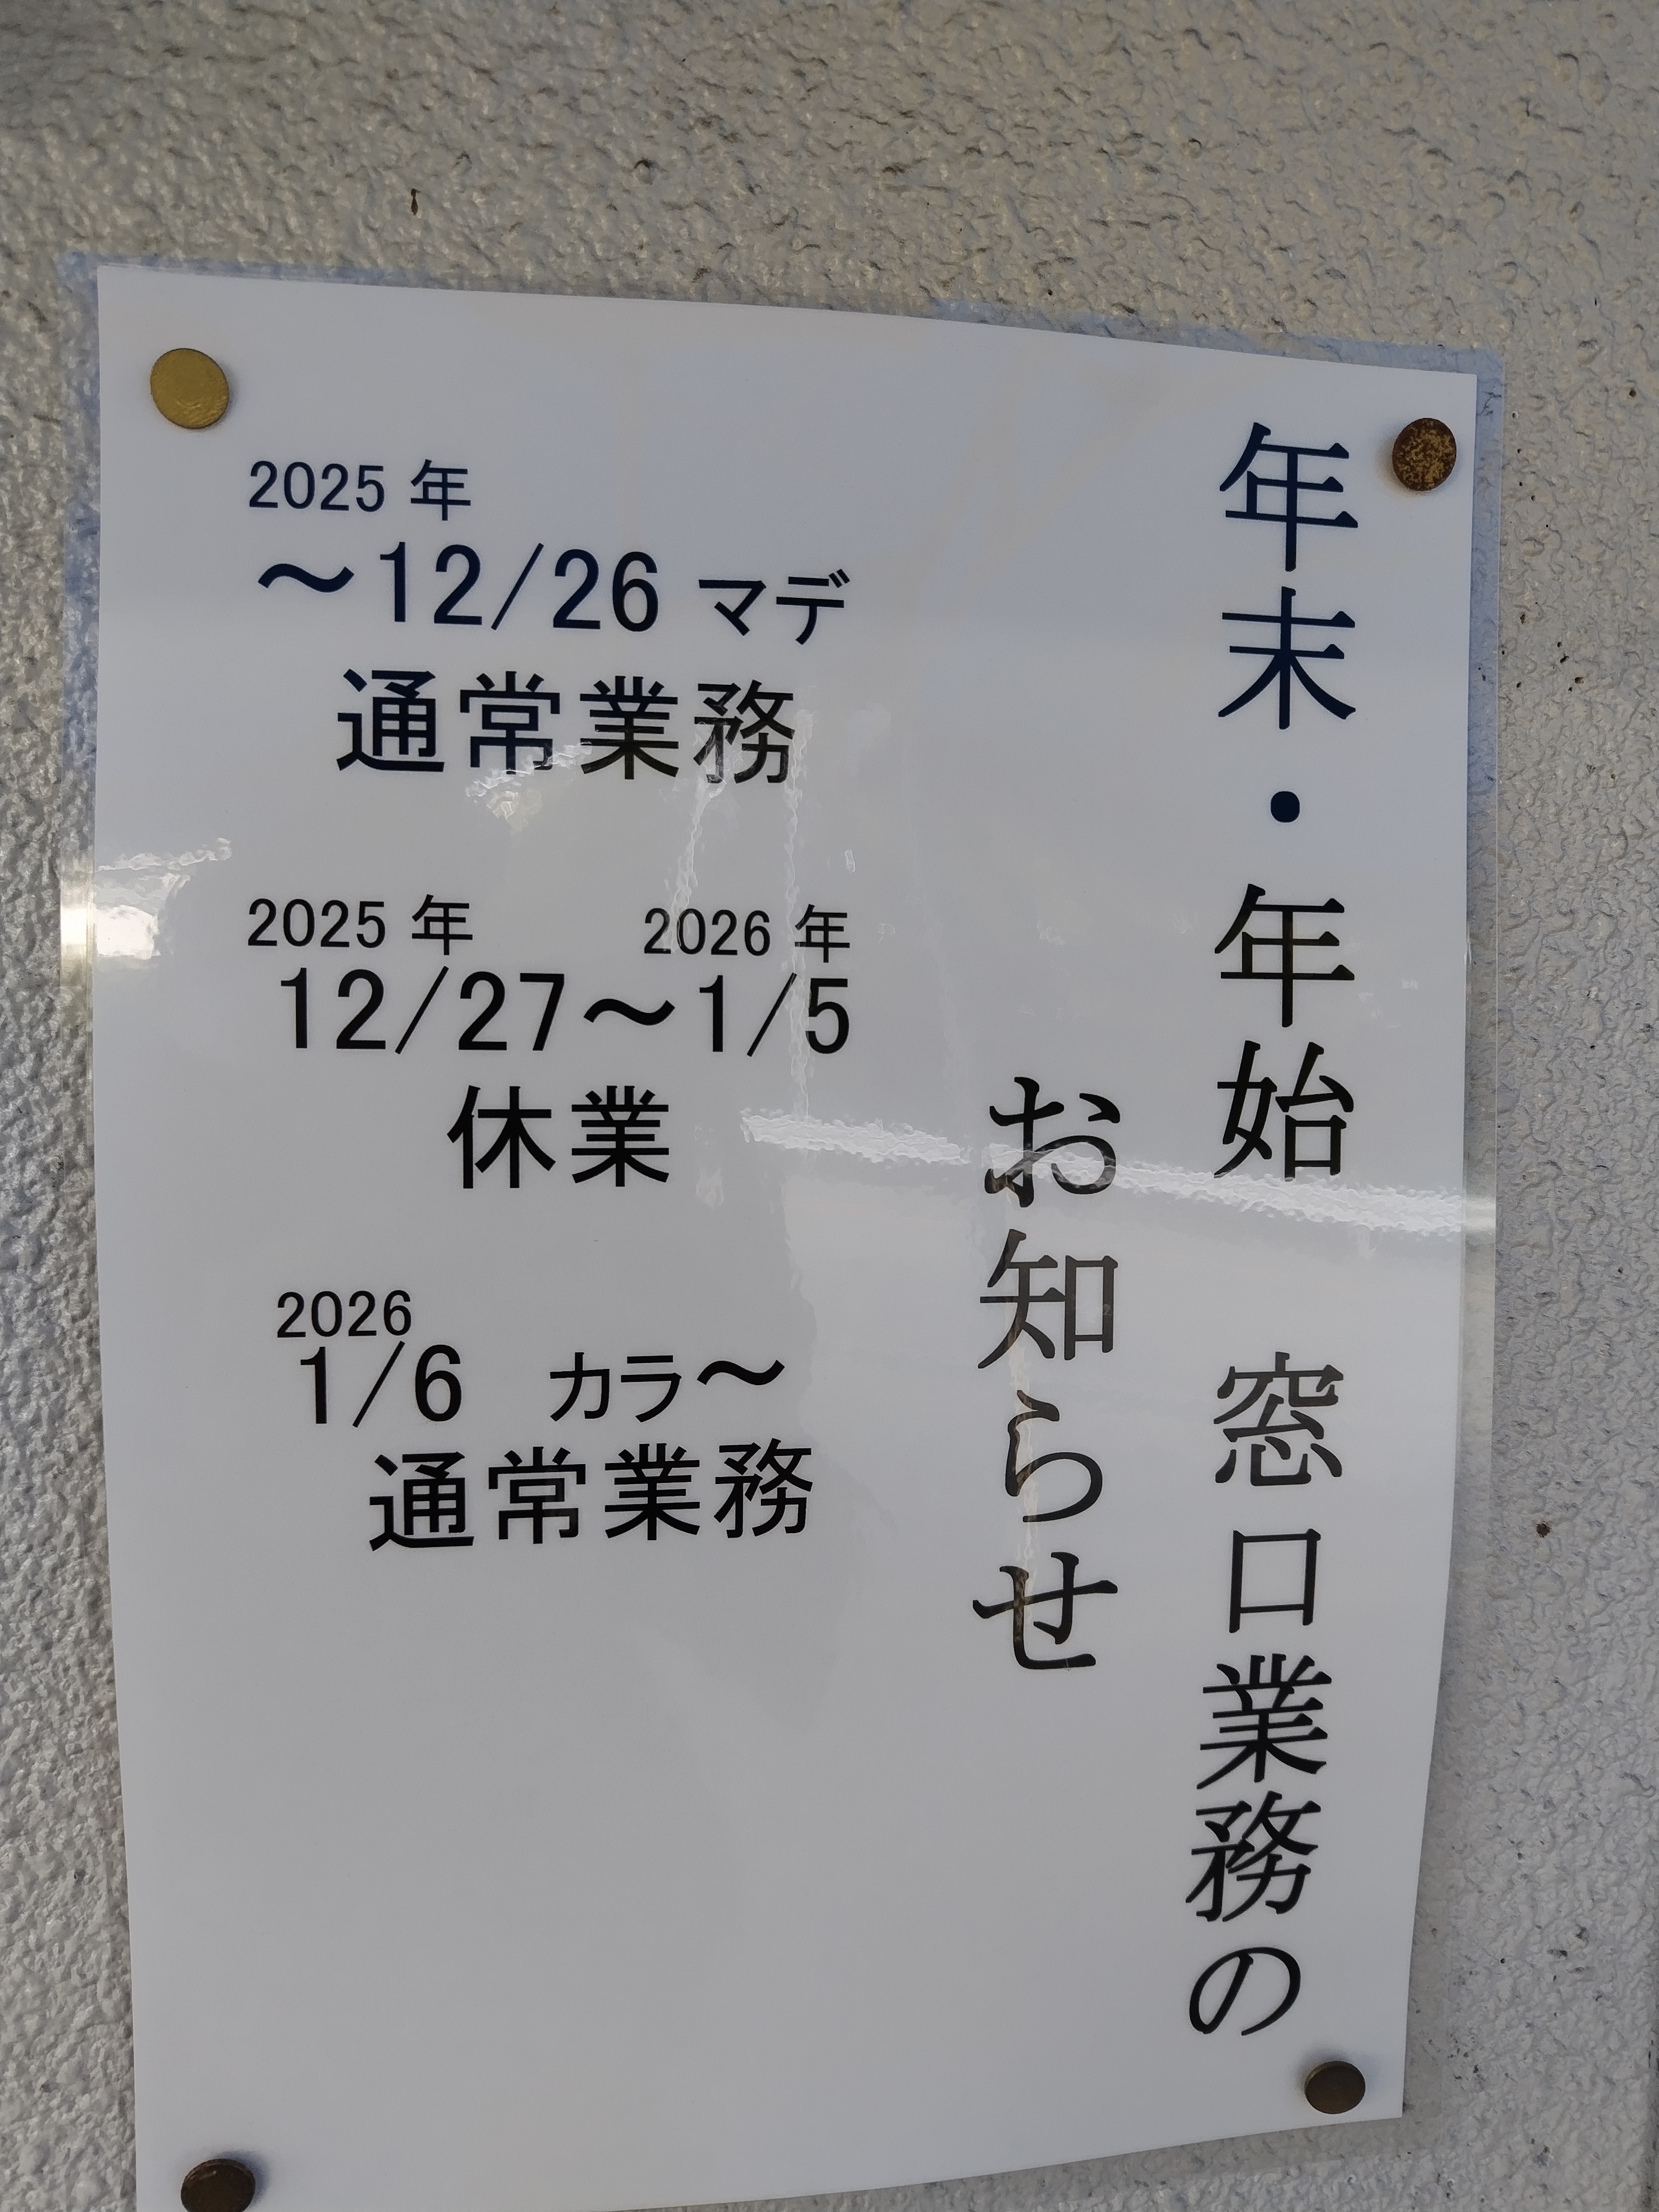 年末・年始　窓口業務の
お知らせ
2025 年
～12/26 マデ
通常業務
2025 年　2026 年
12/27～1/5
休業
2026
1/6　カラ～
通常業務